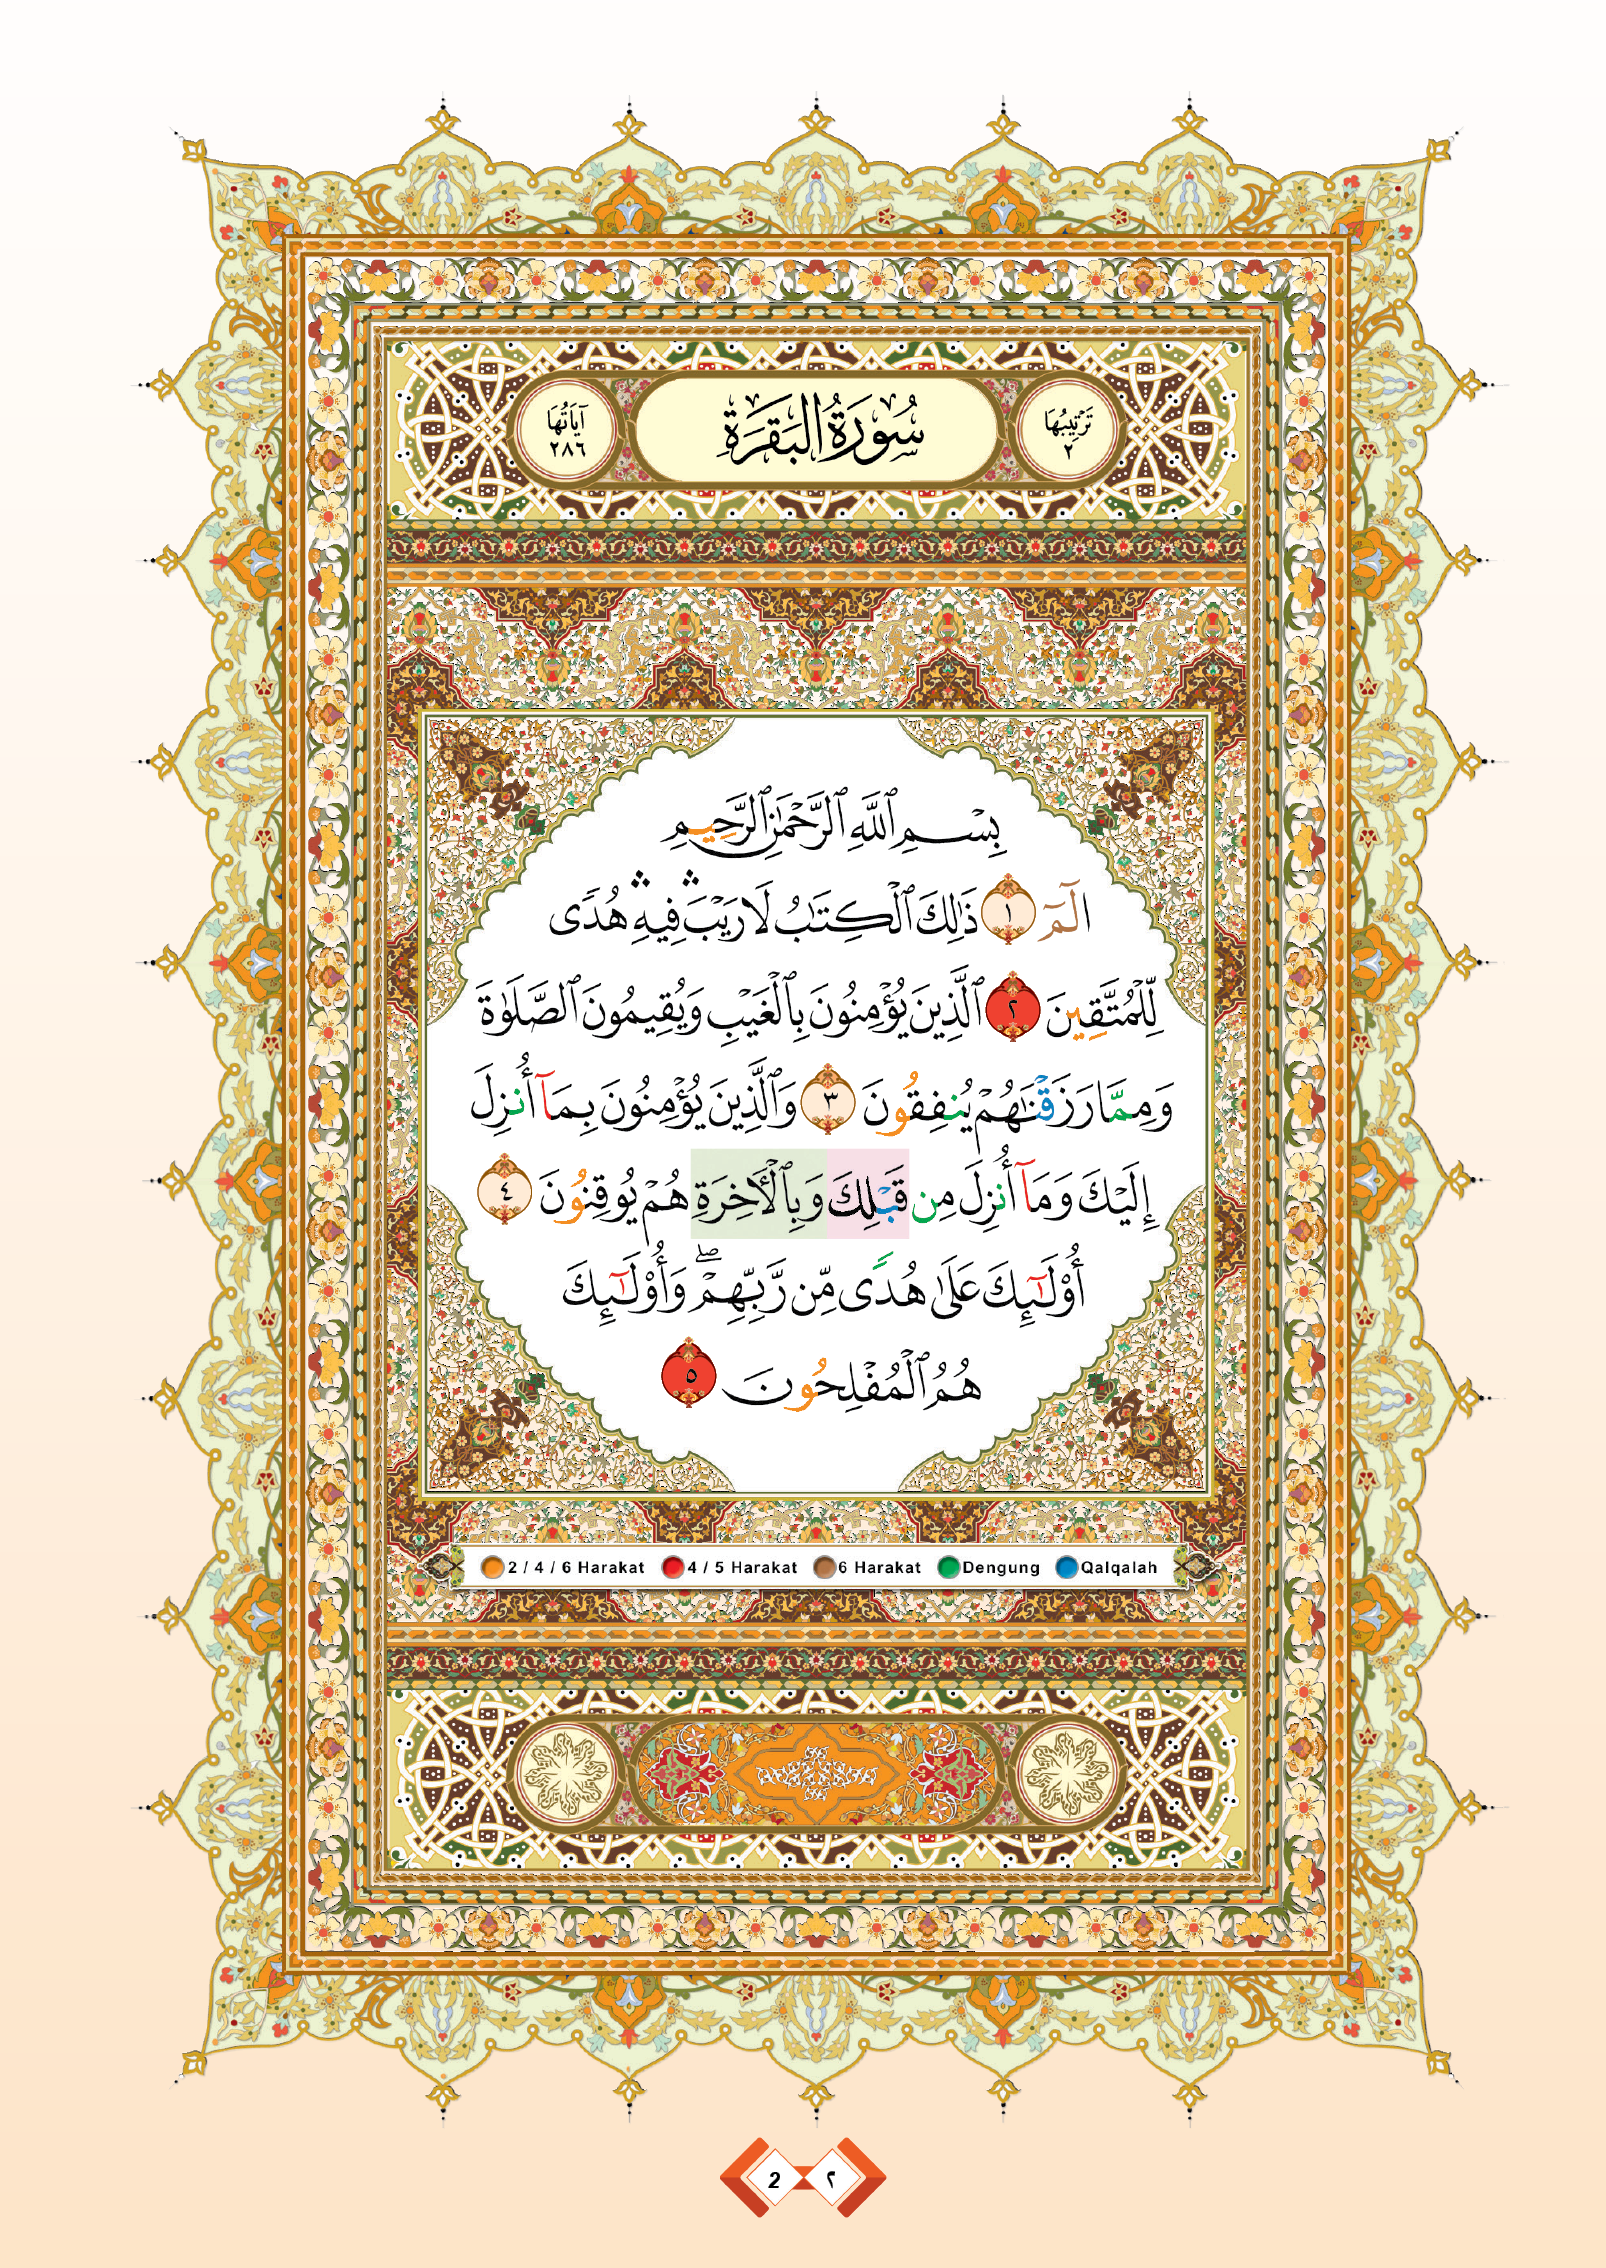 ترتيبها
٢
سُورَةُ البَقَرَةِ
آياتُها
٢٨٦
بِسْمِ ٱللَّهِ ٱلرَّحْمَٰنِ ٱلرَّحِيمِ
الٓمٓ ١ ذَٰلِكَ ٱلْكِتَٰبُ لَا رَيْبَ ۛ فِيهِ ۛ هُدًى
لِّلْمُتَّقِينَ ٢ ٱلَّذِينَ يُؤْمِنُونَ بِٱلْغَيْبِ وَيُقِيمُونَ ٱلصَّلَوٰةَ
وَمِمَّا رَزَقْنَٰهُمْ يُنفِقُونَ ٣ وَٱلَّذِينَ يُؤْمِنُونَ بِمَآ أُنزِلَ
إِلَيْكَ وَمَآ أُنزِلَ مِن قَبْلِكَ وَبِٱلْأَخِرَةِ هُمْ يُوقِنُونَ ٤
أُو۟لَٰٓئِكَ عَلَىٰ هُدًى مِّن رَّبِّهِمْ ۖ وَأُو۟لَٰٓئِكَ
هُمُ ٱلْمُفْلِحُونَ ٥
2 / 4 / 6 Harakat 4 / 5 Harakat 6 Harakat Dengung Qalqalah
2 ٢